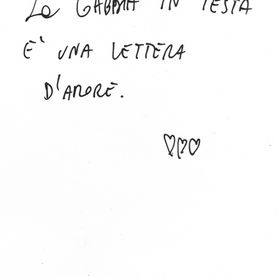 La GABBIA IN TESTA
E' UNA LETTERA
D'AMORE.